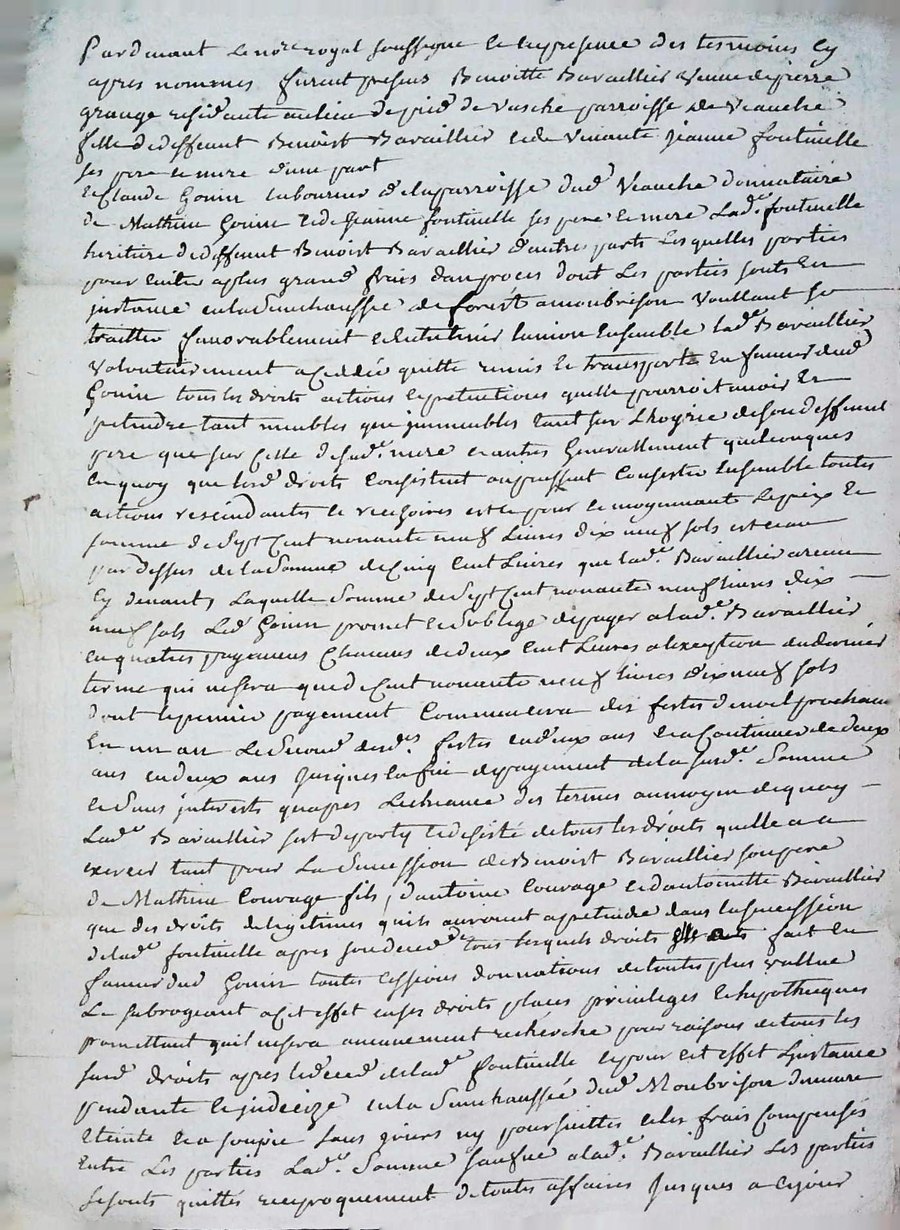 Pardevant Le no.re royal soussigne et en presence des tesmoins cy
apres nommes furent presens Benoitte Bavaillier veuve de pierre
grange residante au lieu de pied de vasche parroisse de Veauche
fille de deffeunt Benoist Bavaillier et de vivante jeanne fontinelle
ses pere et mere d'une part
et Claude Gonin laboureur de la parroisse dud. Veauche donnataire
de Mathieu Gonin et de jeanne fontinelle ses pere et mere Lad.e fontinelle
heritiere de deffeunt Benoist Bavaillier d'autre part Lesquelles parties
pour eviter a plus grand frais d'un proces dont Les parties sont En
justance en la Senechaussée de forest a monbrison Voullant se
traitter favorablement et Entretenir l'union Ensemble lad.e Bavaillier
volontairement a ceddé quitté remis et transporté En faveur dud.
Gonin tous les droits actions et pretentions quelle pourroit avoir Et
pretendre tant meubles que jmmeubles tant sur L'hoyrie de son deffeunt
pere que sur celle de sad.e mere et autres Generallement quelconques
En quoy que lesd. droits consistent ou puissent consister Ensemble toutes
actions rescindantes et rescizoires et ce pour et moyennant Le prix et
somme de Sept Cent nonante neuf Livres dix neuf sols et ce au
par dessus de la Somme de Cinq Cent Livres que lad.e Bavaillier a receu
Cy devant, Laquelle Somme de Sept Cent nonante neuf livres dix
neuf sols Led. Gonin promet et S'oblige de payer a lad.e Bavaillier
en quatre payemens Chacuns de deux Cent Livres a l'exeption du dernier
terme qui ne sera que de Cent nonante neuf livres dix neuf sols
dont le premier payement Commencera des festes de noel prochain
En un an Le Second desd.es festes en deux ans et a Continuer de deux
ans en deux ans jusques la fin de payement de la susd.e Somme
et Sans jnterests qu'apres L'echeance des termes au moyen de quoy
Lad.e Bavaillier s'est departy et desisté de tous les droits quelle a a
exercer tant pour La Succession de Benoist Bavaillier son pere
de Mathieu Couvage fils d'antoine Couvage et d'antoinette Bavaillier
que des droits de legitimes qu'ils auroient a pretendre dans la succession
de lad.e fontinelle apres son deced tous lesquels droits fait en
faveur dud. Gonin toutes cessions donnations de toutes plus vallue
Le subrogeant a cet effet en ses droits places privileges et hipotheques
promettant qu'il ne sera aucunement recherche pour raisons de tous les
susd. droits apres le deced de lad.e fontinelle et pour cet effet L'justance
pendante et judecize en la Senechaussée dud. Monbrison demeure
eteinte et assoupie sans y poursuittes et les frais Compensés
Entre Les parties Lad.e Somme sauve a lad.e Bavaillier Les parties
se sont quittés reciproquement de toutes affaires jusques a ce jour